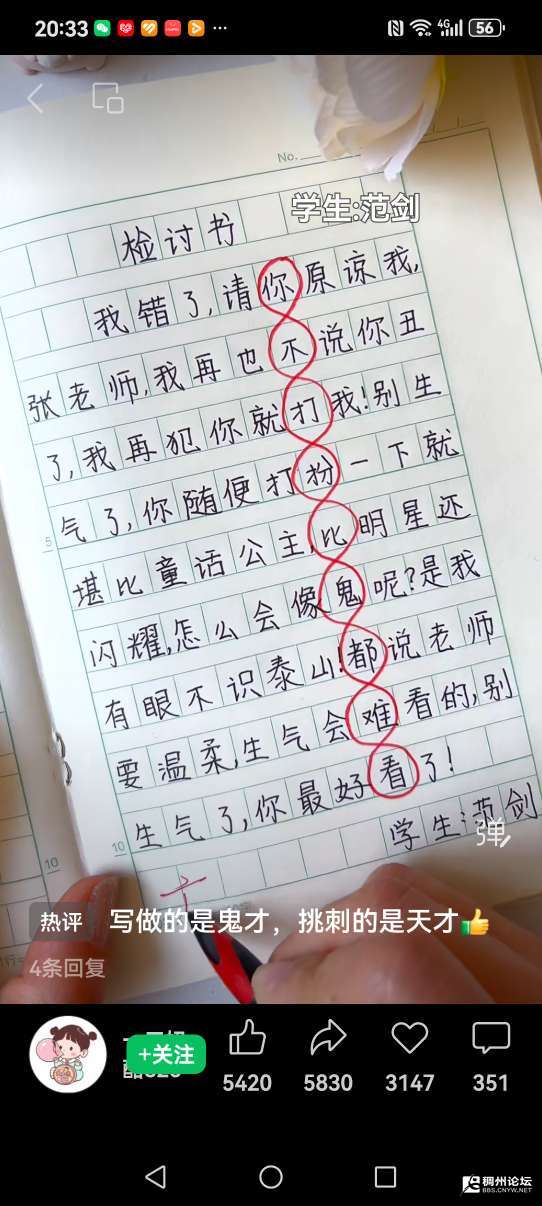 20:33
4G
56
No.
学生:范剑
检讨书
我错了,请你原谅我,
张老师,我再也不说你丑
了,我再犯你就打我!别生
气了,你随便打扮一下就
堪比童话公主,比明星还
闪耀,怎么会像鬼呢?是我
有眼不识泰山!都说老师
要温柔,生气会难看的,别
生气了,你最好看了!
学生:范剑
5
10
10
弹
热评 写做的是鬼才，挑刺的是天才👍
4条回复
+关注
5420
5830
3147
351
稠州论坛
BBS.CNYW.NET